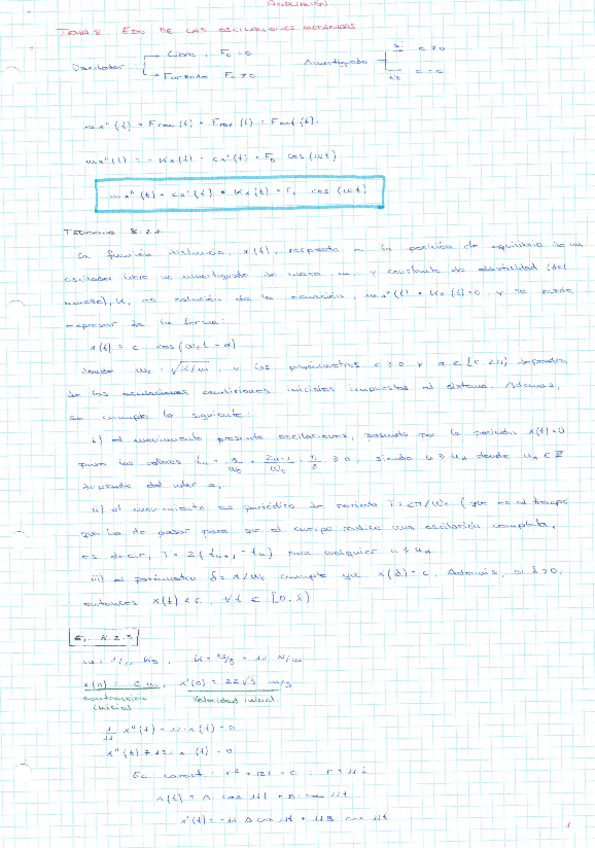 AMPLIACIÓN
TEMA 8. EDO DE LAS OSCILACIONES MECÁNICAS
Libre, F₀ = 0
Oscilador
Forzado F₀ ≠ 0
Amortiguado
si c ≠ 0
no c = 0
m x''(t) = F (t) + F (t) + F (t).
m x''(t) = - K x(t) - c x'(t) + F₀ cos (wt)
m x''(t) + c x'(t) + K x(t) = F₀ cos (wt)
Teorema 8.2.1
La función distancia, x(t), respecto a la posición de equilibrio de un
oscilador libre no amortiguado de masa, m, y constante de elasticidad (del
muelle), K, es solución de la ecuación, m x''(t) + K x(t) = 0, y se puede
expresar de la forma:
x(t) = c · cos (w₀t - α)
donde w₀ = √K/m, y los parámetros c ≥ 0 y α ∈ dependen
de las condiciones iniciales impuestas al sistema. Además,
se cumple lo siguiente:
i) el movimiento presenta oscilaciones, pasando por la posición x(t) = 0
para los valores ≥ 0, siendo donde ∈ Z
depende del valor α,
ii) el movimiento es periódico de periodo T = 2π/w₀ (que es el tiempo
que ha de pasar para que el cuerpo realice una oscilación completa,
es decir, T = 2( ) para cualquier
iii) el parámetro δ = α/w₀ cumple que x(δ) = c. Además, si δ > 0,
entonces x(t) < c, ∀t ∈ [0, δ)
Ej. 8.2.3
m = 1/11 Kg, K = = 11 N/m
x(0) = 2 m, x'(0) = 22√3 m/s
inicial
Velocidad inicial.
1/11 x''(t) + 11 x(t) = 0
x''(t) + 121 x(t) = 0
Ec caract: r² + 121 = 0 : r = ± 11 i
x(t) = A · cos 11t + B · sen 11t
x'(t) = -11 A sen 11t + 11 B cos 11t
1